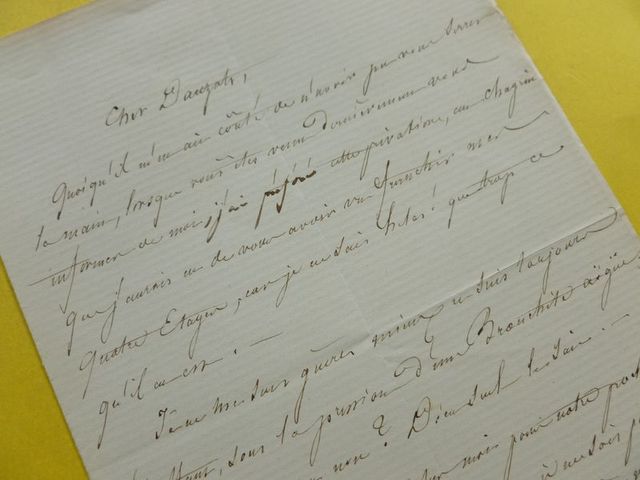 Cher Dauzats,
Quoiqu'il m'en ait coûté de n'avoir pu vous serrer
la main, lorsque vous êtes venu dernièrement vous
informer de moi, j'ai préféré cette privation, au chagrin
que j'aurais eu de vous avoir vu franchir mes
quatre Etages, car je ne sais hélas! que trop ce
qu'il en est. —
Je ne me sens guères mieux, et suis toujours
sous la pression d'une Bronchite aigüe.
non? Dieu seul le sait. —
mois pour notre
je ne sois